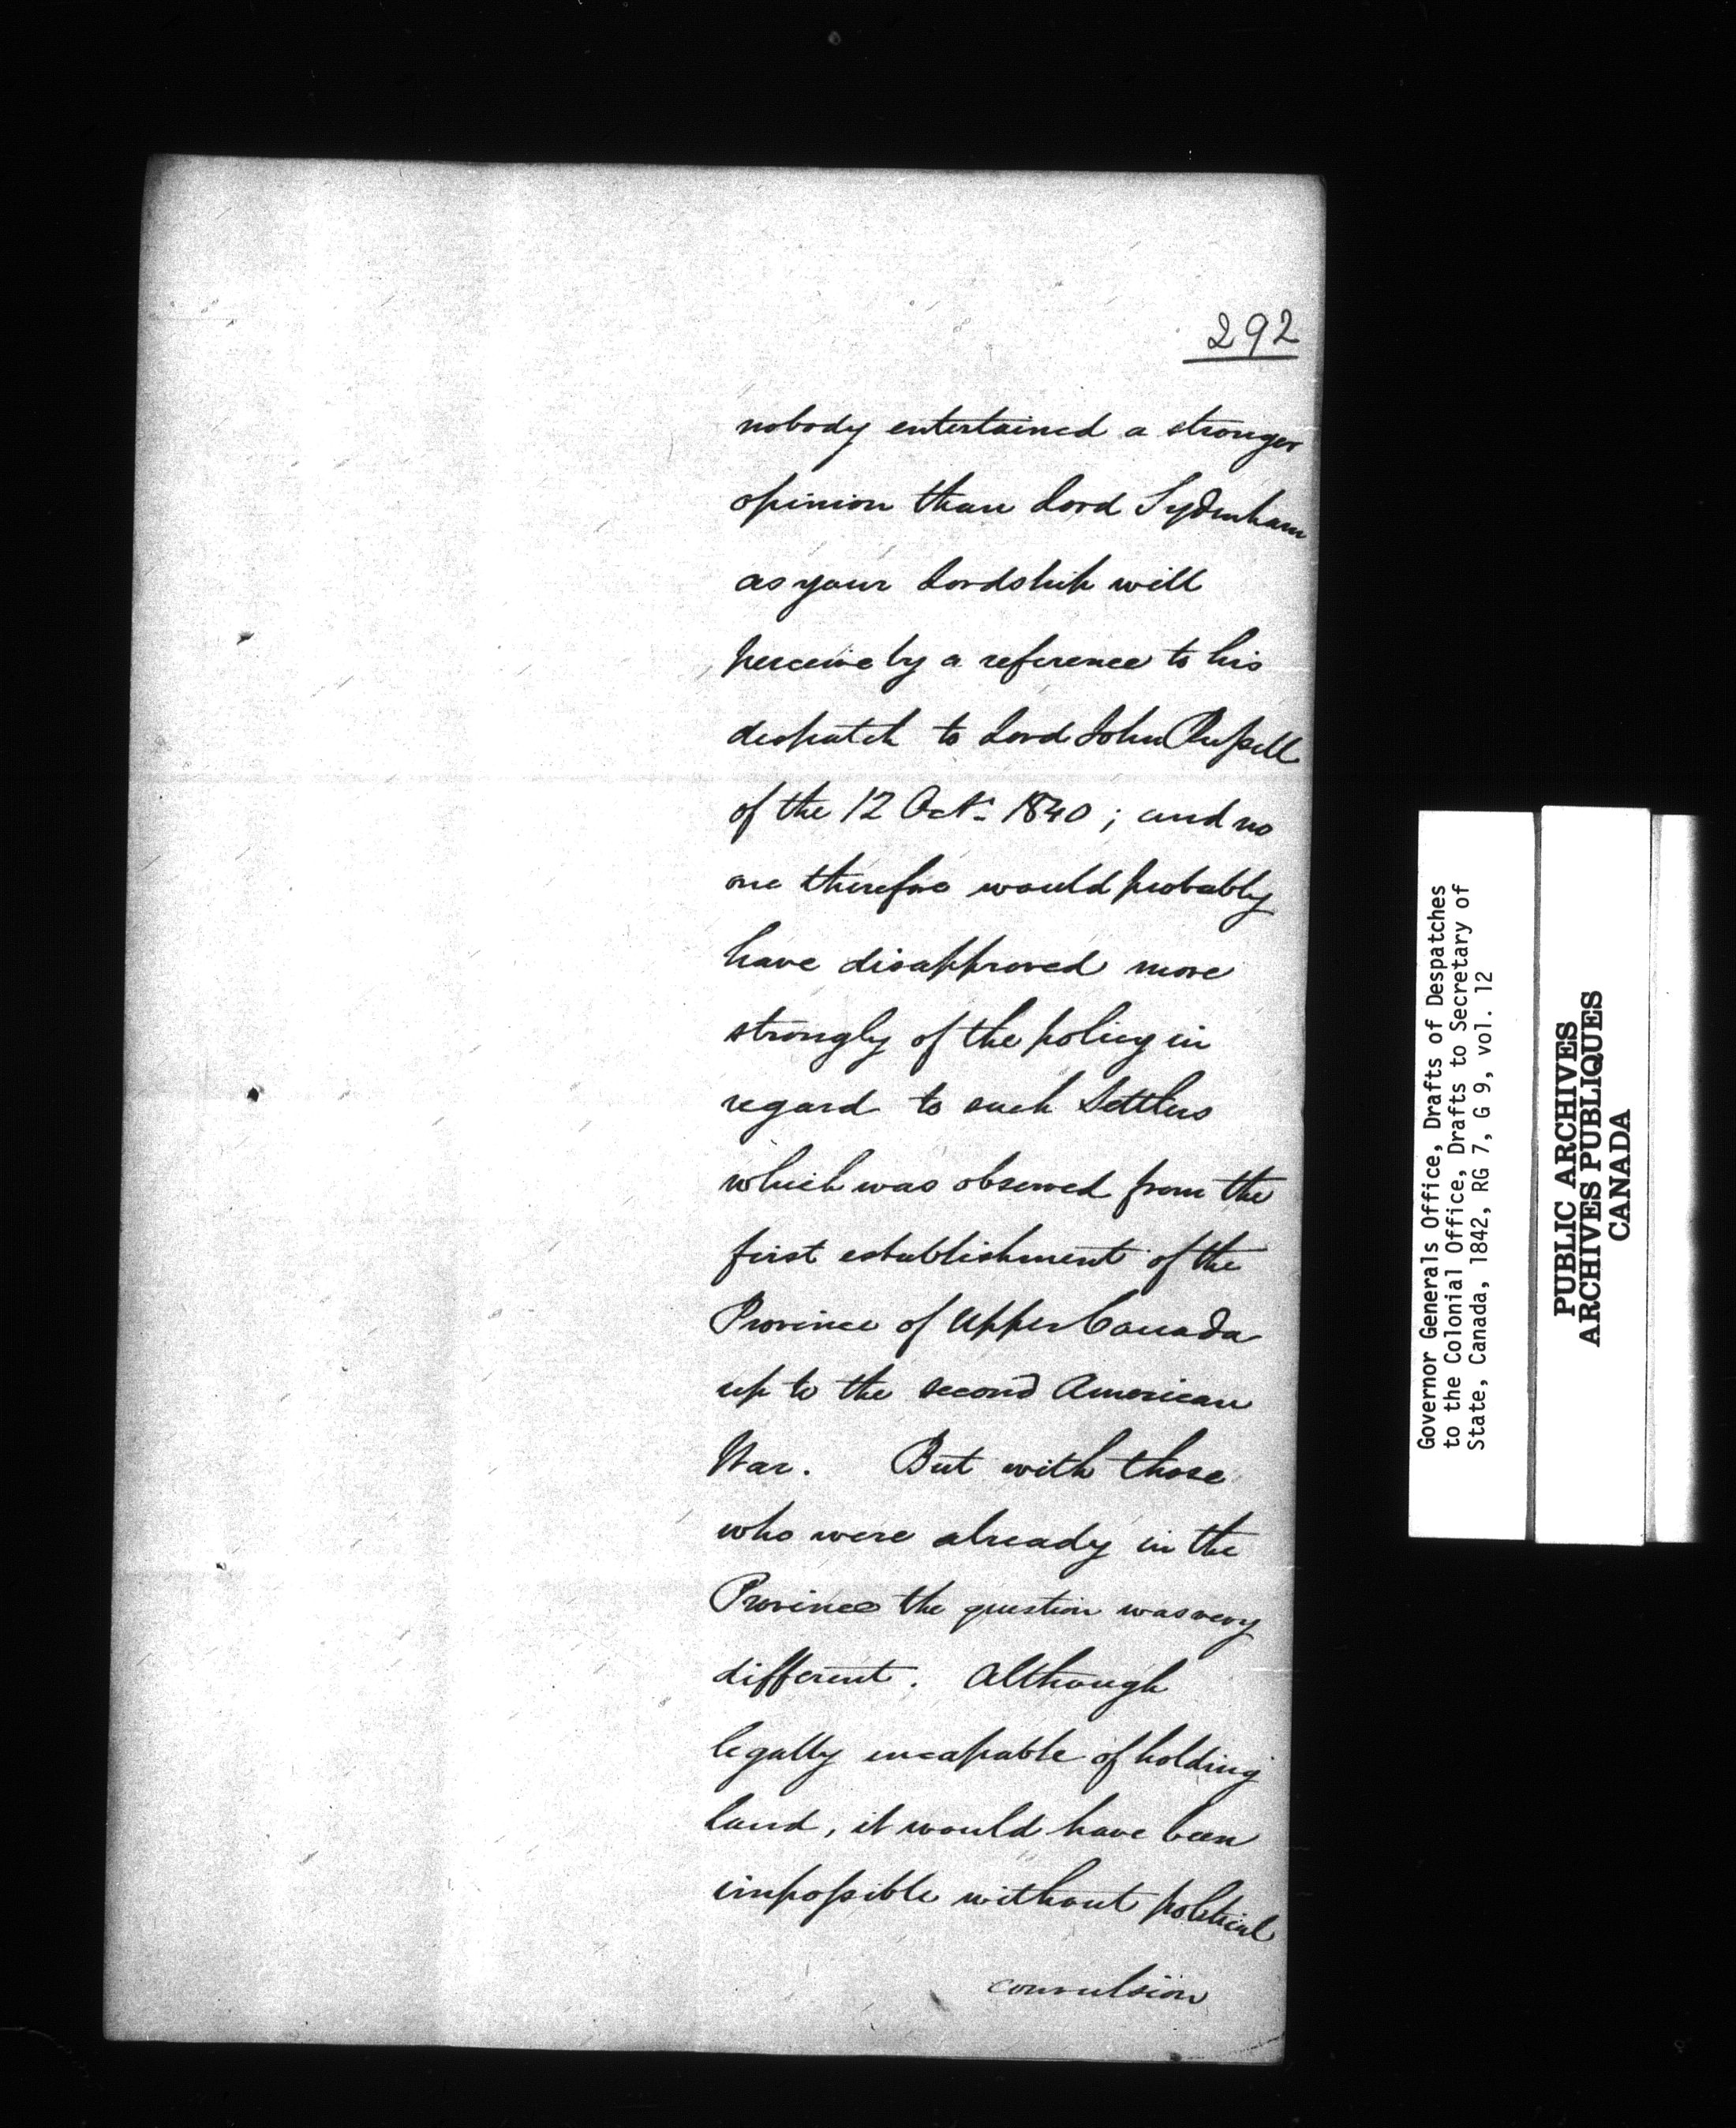 292
nobody entertained a stronger
opinion than Lord Sydenham
as your Lordship will
perceive by a reference to his
despatch to Lord John Russell
of the 12 Oct. 1840; and no
one therefore would probably
have disapproved more
strongly of the policy in
regard to such Settlers
which was observed from the
first establishment of the
Province of Upper Canada
up to the second American
War. But with those
who were already in the
Province the question was very
different. Although
legally incapable of holding
land, it would have been
impossible without political
convulsion
Governor Generals Office, Drafts of Despatches
to the Colonial Office, Drafts to Secretary of
State, Canada, 1842, RG 7, G 9, vol. 12
PUBLIC ARCHIVES
ARCHIVES PUBLIQUES
CANADA